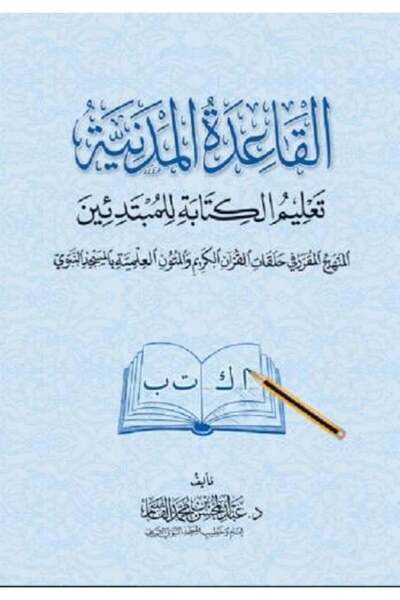 القَاعِدَةُ المَدَنِيَّةُ
تَعْلِيمُ الكِتَابَةِ لِلْمُبْتَدِئِينَ
المنهج المقرر في حلقات القرآن الكريم والمتون العلمية بالمسجد النبوي
ا ك ت ب
تأليف
د. عبد المحسن بن محمد القاسم
إمام وخطيب المسجد النبوي الشريف